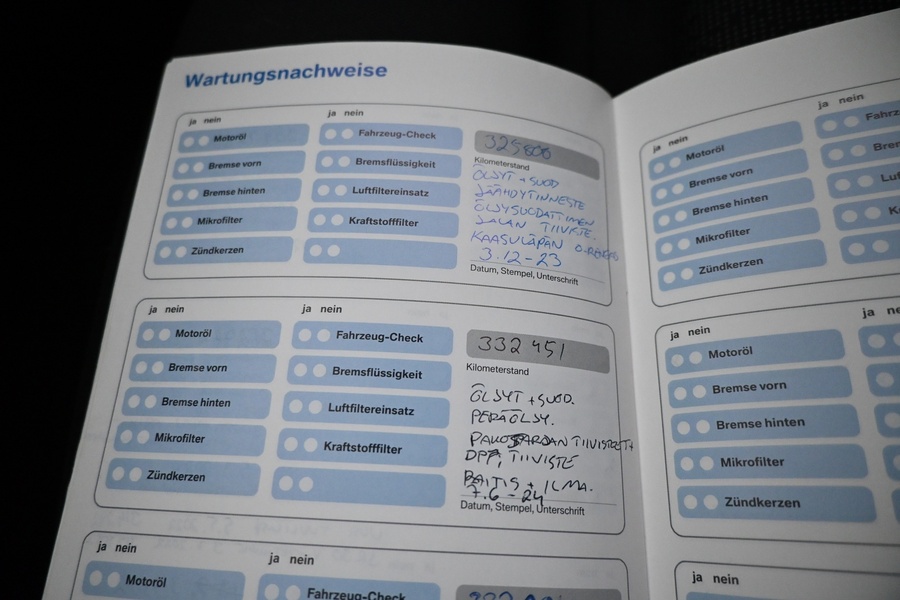 Wartungsnachweise
ja nein
Motoröl
Bremse vorn
Bremse hinten
Mikrofilter
Zündkerzen
ja nein
Fahrzeug-Check
Bremsflüssigkeit
Luftfiltereinsatz
Kraftstofffilter
325800
Kilometerstand
ÖLJYT + SUOD
JÄÄHDYTINNESTE
ÖLJYSUODATTIMEN
JALAN TIIVISTE.
KAASULÄPÄN
3.12-23
Datum, Stempel, Unterschrift
ja nein
Motoröl
Bremse vorn
Bremse hinten
Mikrofilter
Zündkerzen
ja nein
Fahrzeug-Check
Bremsflüssigkeit
Luftfiltereinsatz
Kraftstofffilter
332 451
Kilometerstand
ÖLJYT + SUOD.
PERÄÖLJY.
DPF, TIIVISTE
+ ILMA.
7.6-24
Datum, Stempel, Unterschrift
ja nein
Motoröl
ja nein
Fahrzeug-Check
ja nein
Motoröl
Bremse vorn
Bremse hinten
Mikrofilter
Zündkerzen
ja nein
Fahrz
Brem
ja nein
Motoröl
Bremse vorn
Bremse hinten
Mikrofilter
Zündkerzen
ja ne
ja nein